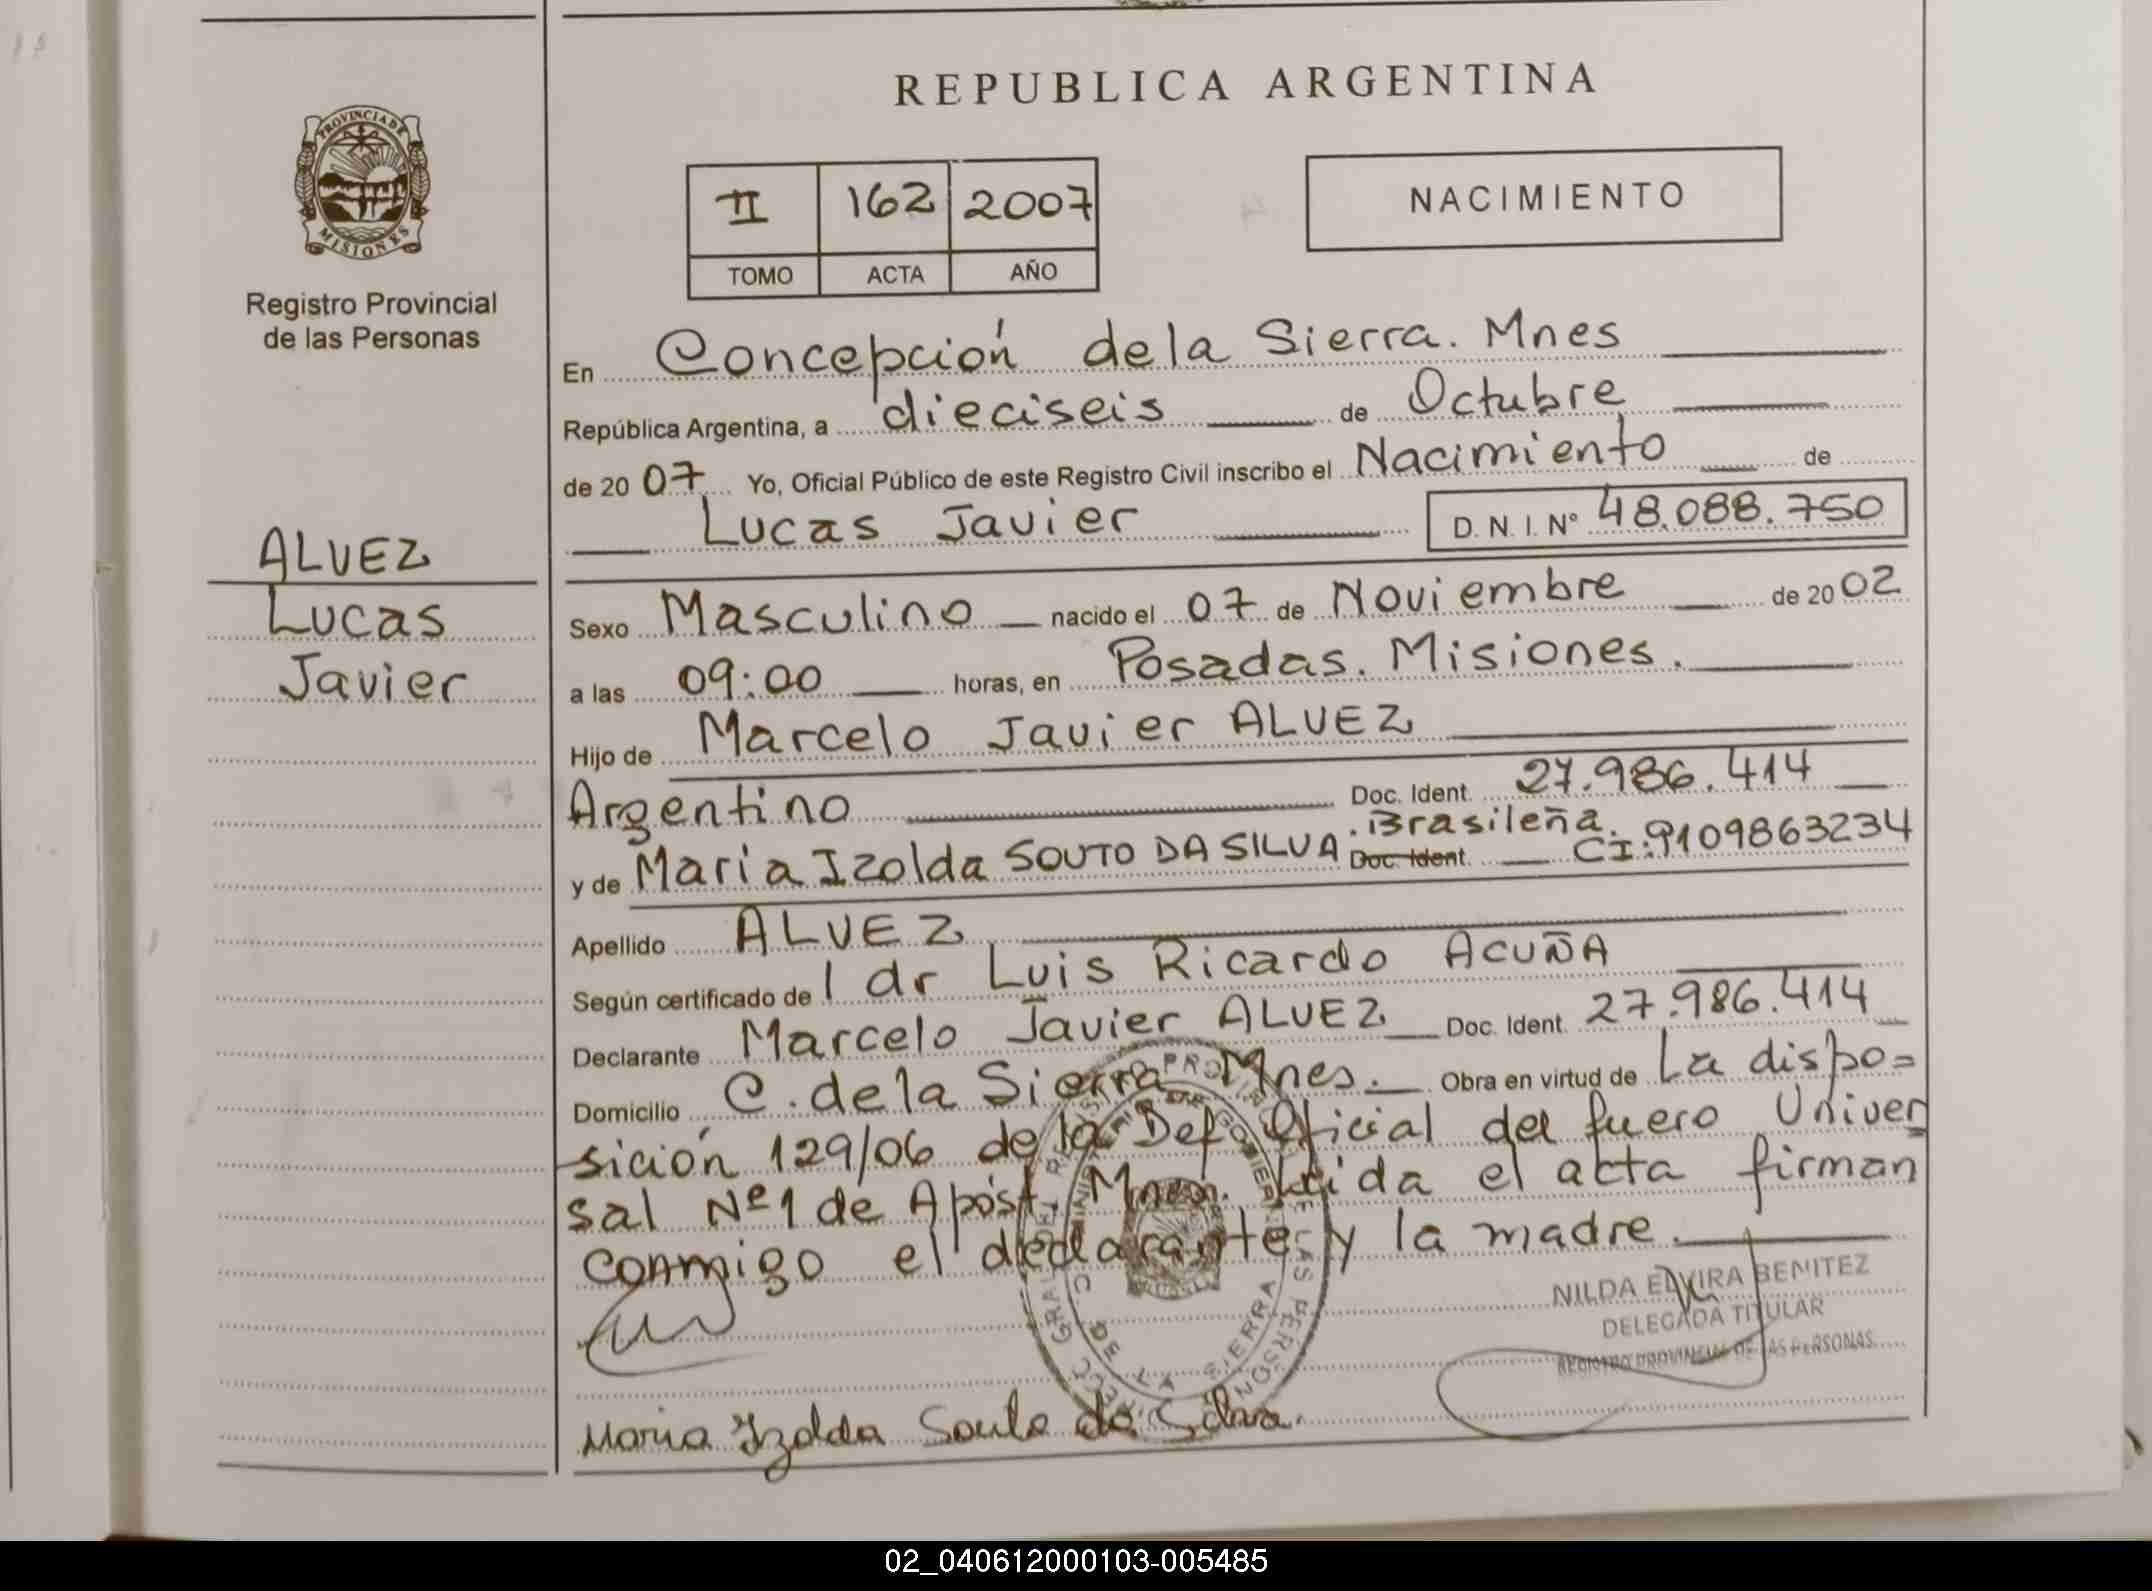 REPUBLICA ARGENTINA
PROVINCIA DE
MISIONES
Registro Provincial
de las Personas
II 162 2007
TOMO ACTA AÑO
NACIMIENTO
ALVEZ
Lucas
Javier
En Concepción de la Sierra. Mnes
República Argentina, a dieciseis de Octubre
de 2007 Yo, Oficial Público de este Registro Civil inscribo el Nacimiento de
Lucas Javier D. N. I. Nº 48.088.750
Sexo Masculino nacido el 07 de Noviembre de 2002
a las 09:00 horas, en Posadas. Misiones.
Hijo de Marcelo Javier ALVEZ
Argentino Doc. Ident. 27.986.414
y de Maria Izolda SOUTO DA SILVA. Brasileña. Doc. Ident. CI:9109863234
Apellido ALVEZ
Según certificado de l dr Luis Ricardo ACUÑA
Declarante Marcelo Javier ALVEZ Doc. Ident. 27.986.414
Domicilio C. de la Sierra Mnes. Obra en virtud de La dispo=
sición 129/06 de la Def. Oficial del fuero Univer
sal Nº1 de Apóst. Mnes. Leida el acta firman
conmigo el declarante y la madre.
NILDA ELVIRA BENITEZ
DELEGADA TITULAR
REGISTRO PROVINCIAL DE LAS PERSONAS
Maria Izolda Souto da Silva.
02_040612000103-005485